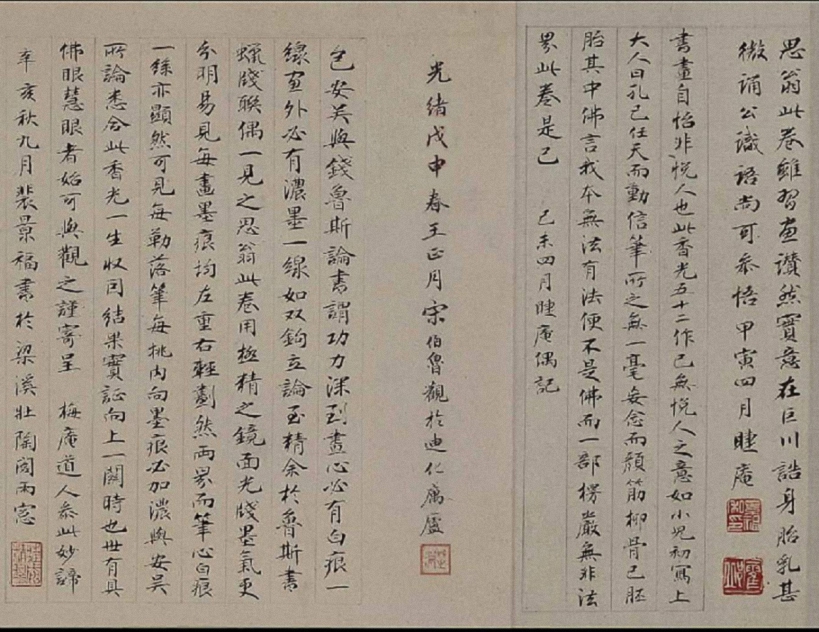 思翁此卷雖習画讚然實意在巨川誥身胎乳甚
微誦公識語尚可参悟甲寅四月睫庵
書畫自怡非悦人也此香光五十二作已無悦人之意如小兒初寫上
大人曰孔已任天而動信筆所之無一毫妄念而顔筋柳骨已胚
胎其中佛言我本無法有法便不是佛而一部楞嚴無非法
界此卷是已 己未四月睫庵偶記
光緒戊申春王正月宋伯魯觀於迪化寓廬
包安吴與錢魯斯論書謂功力深到畫心必有白痕一
線畫外必有濃墨一線如双鉤立論至精余於魯斯書
蠟牋聯偶一見之思翁此卷用極精之鏡面光牋墨氣更
分明易見每畫墨痕均左重右輕劃然兩界而筆心白痕
一絲亦顯然可見每勒落筆每挑内向墨痕必加濃與安吴
所論悉合此香光一生収因結果實証向上一關時也世有具
佛眼慧眼者始可與觀之謹寄呈 梅庵道人参此妙諦
辛亥秋九月裴景福書於梁溪壯陶閣雨窓